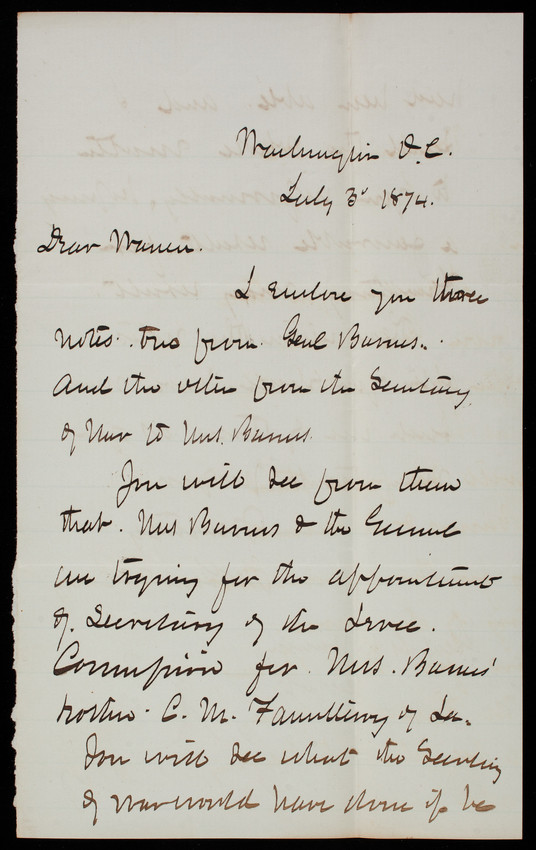 Washington D.C.
July 3d 1874.
Dear Warren.
I enclose you three
notes. two from Genl Barnes.
And the other from the Secretary
of War to Mrs. Barnes
You will see from them
that. Mrs Barnes & the General
are trying for the appointment
of Secretary of the Levee.
Commission for. Mrs. Barnes'
brother. C. M. of La.
You will see what the Secretary
of War would have done if he